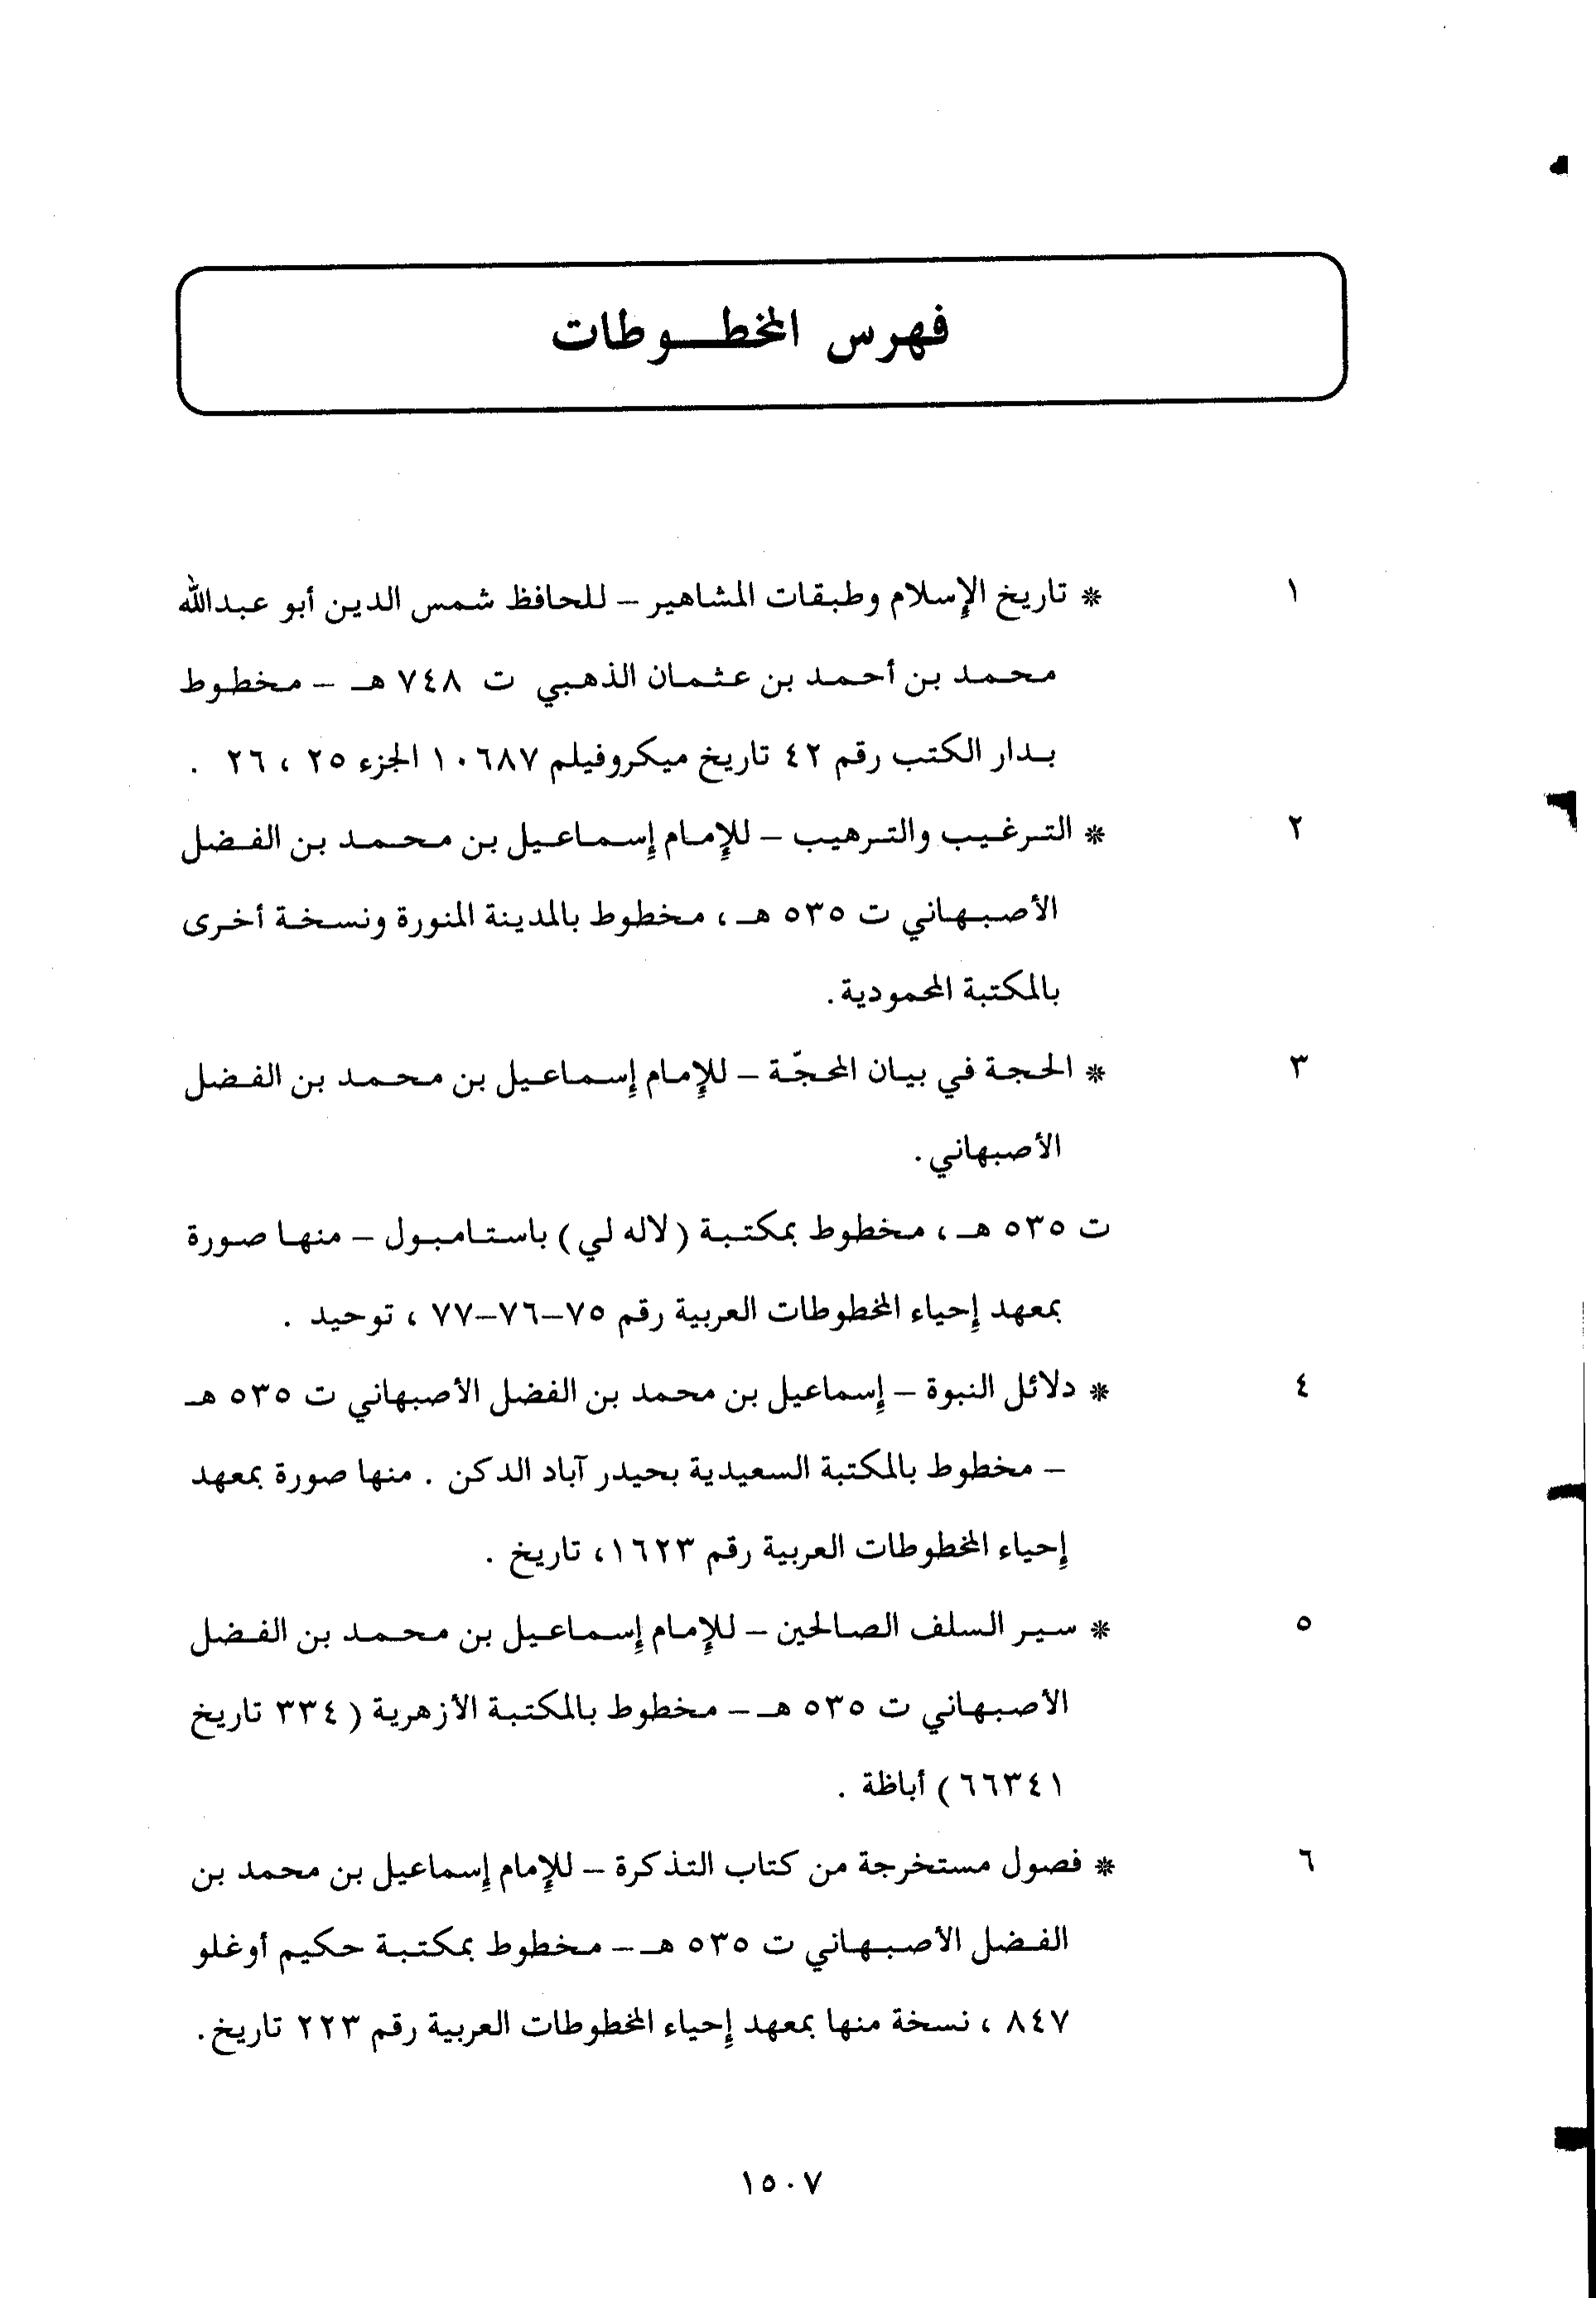 فهرس المخطوطات
١ * تاريخ الإسلام وطبقات المشاهير – للحافظ شمس الدين أبو عبدالله
محمد بن أحمد بن عثمان الذهبي ت ٧٤٨ هـ – مخطوط
بدار الكتب رقم ٤٢ تاريخ ميكروفيلم ١٠٦٨٧ الجزء ٢٥ ، ٢٦ .
٢ * الترغيب والترهيب – للإمام إسماعيل بن محمد بن الفضل
الأصبهاني ت ٥٣٥ هـ ، مخطوط بالمدينة المنورة ونسخة أخرى
بالمكتبة المحمودية.
٣ * الحجة في بيان المحجّة – للإمام إسماعيل بن محمد بن الفضل
الأصبهاني.
ت ٥٣٥ هـ ، مخطوط بمكتبة (لاله لي) باستامبول – منها صورة
بمعهد إحياء المخطوطات العربية رقم ٧٥–٧٦–٧٧ ، توحيد .
٤ * دلائل النبوة – إسماعيل بن محمد بن الفضل الأصبهاني ت ٥٣٥ هـ
– مخطوط بالمكتبة السعيدية بحيدر آباد الدكن . منها صورة بمعهد
إحياء المخطوطات العربية رقم ١٦٢٣، تاريخ .
٥ * سير السلف الصالحين – للإمام إسماعيل بن محمد بن الفضل
الأصبهاني ت ٥٣٥ هـ – مخطوط بالمكتبة الأزهرية ( ٣٣٤ تاريخ
٦٦٣٤١) أباظة .
٦ * فصول مستخرجة من كتاب التذكرة – للإمام إسماعيل بن محمد بن
الفضل الأصبهاني ت ٥٣٥ هـ – مخطوط بمكتبة حكيم أوغلو
٨٤٧ ، نسخة منها بمعهد إحياء المخطوطات العربية رقم ٢٢٣ تاريخ.
١٥٠٧